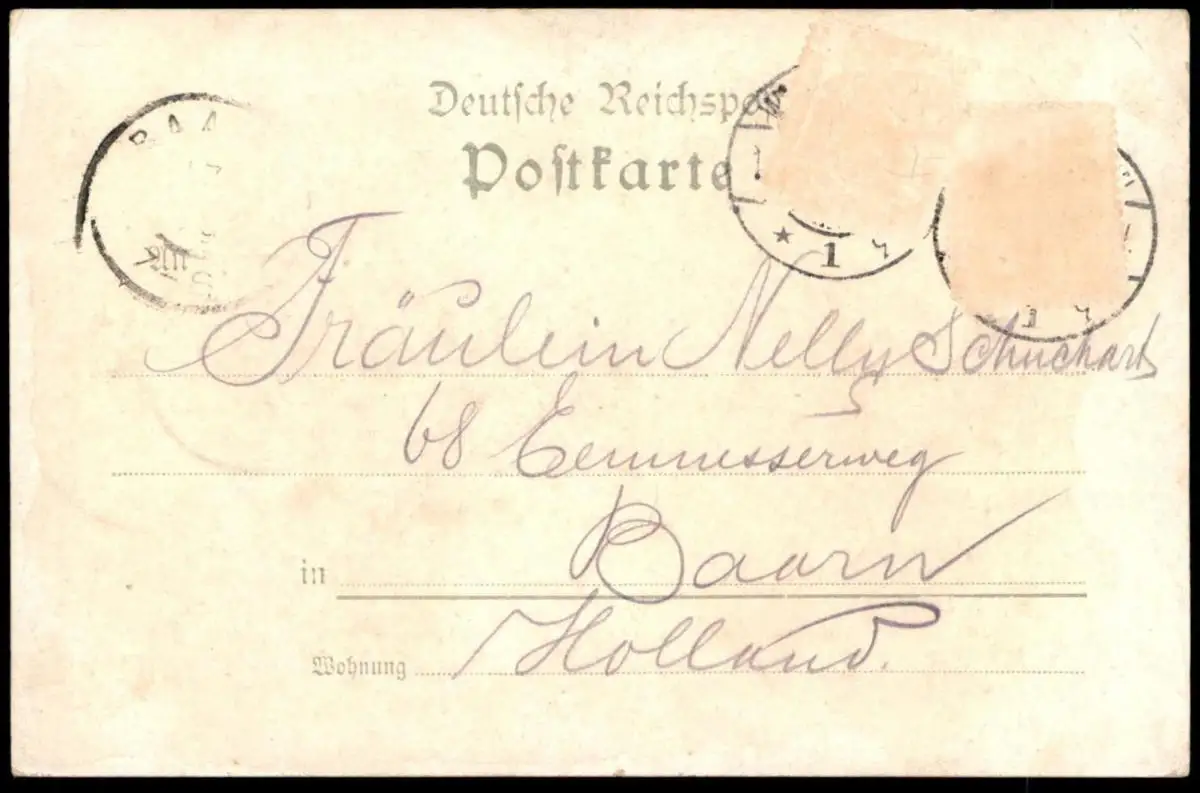 Deutsche Reichspost
Postkarte
BAA
* 1
1
Fräulein Nelly Schuchard
68 Eemnesserweg
in Baarn
Wohnung Holland.